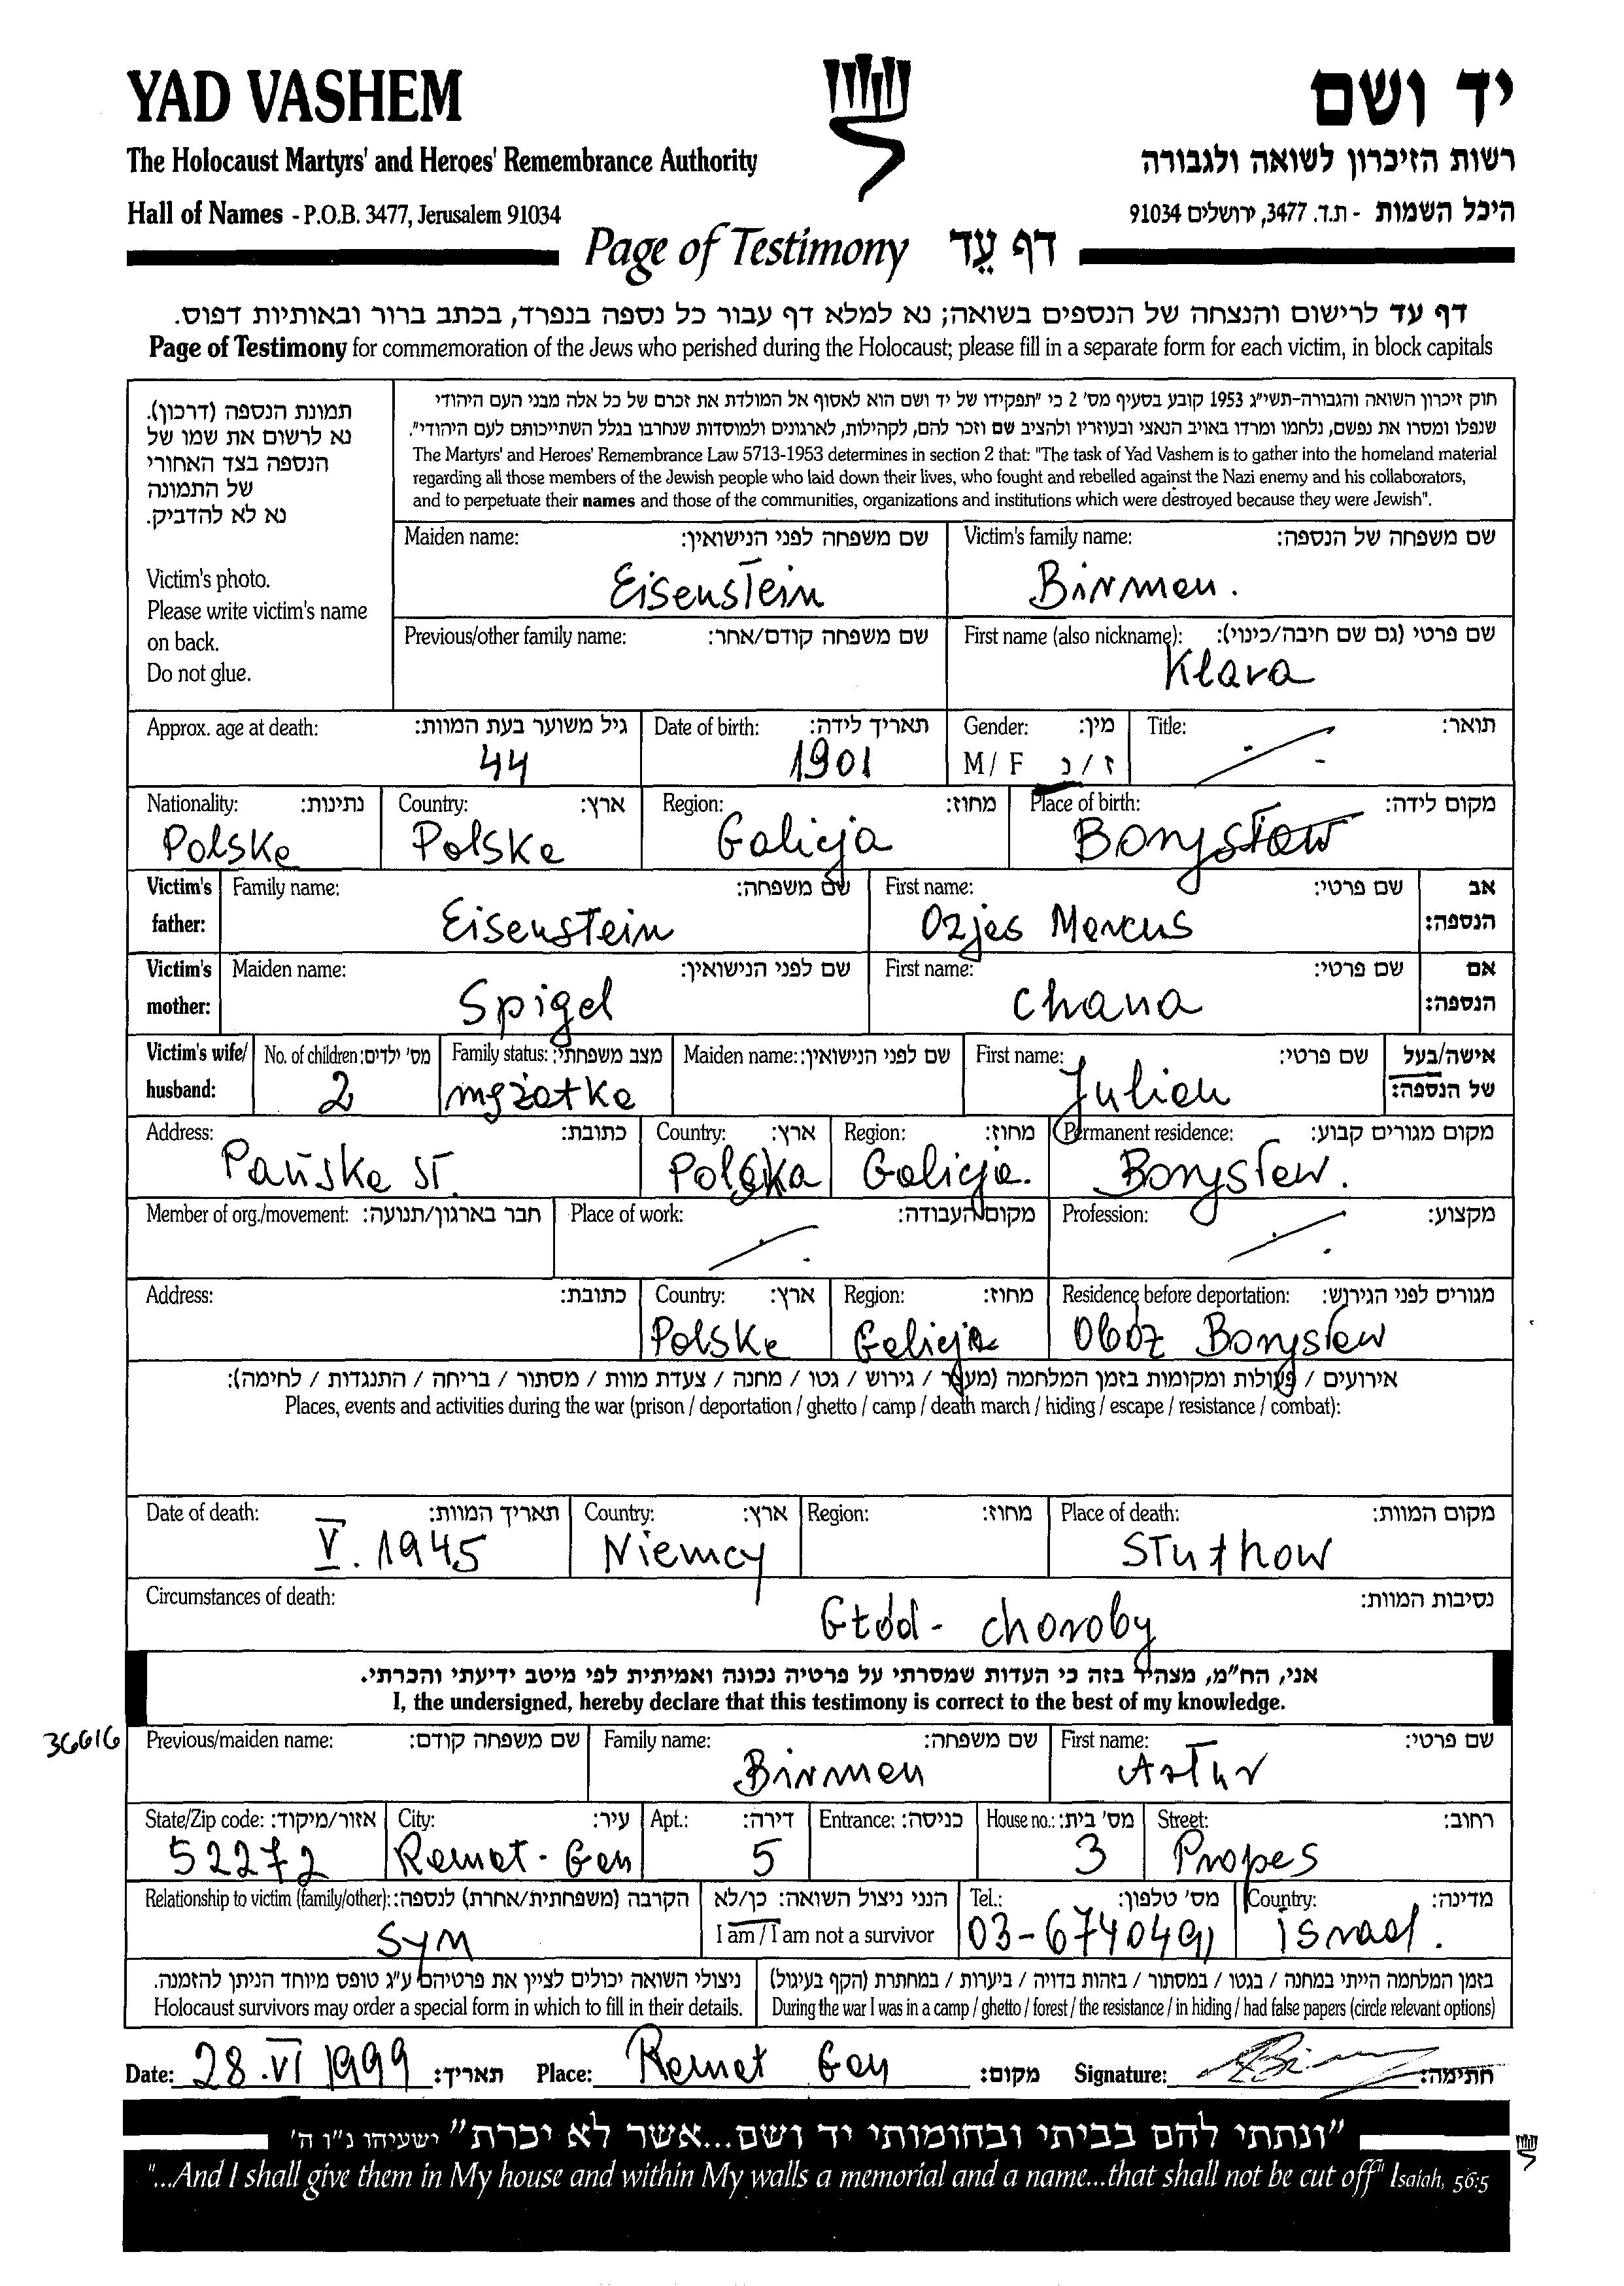 YAD VASHEM יד ושם
The Holocaust Martyrs' and Heroes' Remembrance Authority רשות הזיכרון לשואה ולגבורה
Hall of Names - P.O.B. 3477, Jerusalem 91034 היכל השמות - ת.ד. 3477, ירושלים 91034
Page of Testimony דף עֵד
דף עד לרישום והנצחה של הנספים בשואה; נא למלא דף עבור כל נספה בנפרד, בכתב ברור ובאותיות דפוס.
Page of Testimony for commemoration of the Jews who perished during the Holocaust; please fill in a separate form for each victim, in block capitals
תמונת הנספה (דרכון).
נא לרשום את שמו של
הנספה בצד האחורי
של התמונה
נא לא להדביק.
Victim's photo.
Please write victim's name
on back.
Do not glue.
חוק זיכרון השואה והגבורה-תשי"ג 1953 קובע בסעיף מס' 2 כי "תפקידו של יד ושם הוא לאסוף אל המולדת את זכרם של כל אלה מבני העם היהודי
שנפלו ומסרו את נפשם, נלחמו ומרדו באויב הנאצי ובעוזריו ולהציב שם וזכר להם, לקהילות, לארגונים ולמוסדות שנחרבו בגלל השתייכותם לעם היהודי".
The Martyrs' and Heroes' Remembrance Law 5713-1953 determines in section 2 that: "The task of Yad Vashem is to gather into the homeland material
regarding all those members of the Jewish people who laid down their lives, who fought and rebelled against the Nazi enemy and his collaborators,
and to perpetuate their names and those of the communities, organizations and institutions which were destroyed because they were Jewish".
Maiden name: שם משפחה לפני הנישואין: Victim's family name: שם משפחה של הנספה:
Eisenstein Birman.
Previous/other family name: שם משפחה קודם/אחר: First name (also nickname): שם פרטי (גם שם חיבה/כינוי):
Klara
Approx. age at death: גיל משוער בעת המוות: Date of birth: תאריך לידה: Gender: מין: Title: תואר:
44 1901 M / F ז / נ
Nationality: נתינות: Country: ארץ: Region: מחוז: Place of birth: מקום לידה:
Polska Polska Galicja Borysław
Victim's father: Family name: שם משפחה: First name: שם פרטי: אב הנספה:
Eisenstein Ozjas Marcus
Victim's mother: Maiden name: שם לפני הנישואין: First name: שם פרטי: אם הנספה:
Spigel Chana
Victim's wife/ husband: No. of children: מס' ילדים: Family status: מצב משפחתי: Maiden name: שם לפני הנישואין: First name: שם פרטי: אישה/בעל של הנספה:
2 mężatka Julian
Address: כתובת: Country: ארץ: Region: מחוז: Permanent residence: מקום מגורים קבוע:
Pańska st. Polska Galicja. Borysław.
Member of org./movement: חבר בארגון/תנועה: Place of work: מקום העבודה: Profession: מקצוע:
Address: כתובת: Country: ארץ: Region: מחוז: Residence before deportation: מגורים לפני הגירוש:
Polska Galicja Obóz Borysław
אירועים / פעולות ומקומות בזמן המלחמה (מעצר / גירוש / גטו / מחנה / צעדת מוות / מסתור / בריחה / התנגדות / לחימה):
Places, events and activities during the war (prison / deportation / ghetto / camp / death march / hiding / escape / resistance / combat):
Date of death: תאריך המוות: Country: ארץ: Region: מחוז: Place of death: מקום המוות:
V. 1945 Niemcy Stuthow
Circumstances of death: נסיבות המוות:
Głód - choroby
אני, הח"מ, מצהיר בזה כי העדות שמסרתי על פרטיה נכונה ואמיתית לפי מיטב ידיעתי והכרתי.
I, the undersigned, hereby declare that this testimony is correct to the best of my knowledge.
36616
Previous/maiden name: שם משפחה קודם: Family name: שם משפחה: First name: שם פרטי:
Birman Artur
State/Zip code: אזור/מיקוד: City: עיר: Apt.: דירה: Entrance: כניסה: House no.: מס' בית: Street: רחוב:
52272 Ramat-Gan 5 3 Propes
Relationship to victim (family/other): הקרבה (משפחתית/אחרת) לנספה: הנני ניצול השואה: כן/לא Tel.: מס' טלפון: Country: מדינה:
Syn I am / I am not a survivor 03-6740491 israel.
ניצולי השואה יכולים לציין את פרטיהם ע"ג טופס מיוחד הניתן להזמנה. בזמן המלחמה הייתי במחנה / בגטו / במסתור / בזהות בדויה / ביערות / במחתרת (הקף בעיגול)
Holocaust survivors may order a special form in which to fill in their details. During the war I was in a camp / ghetto / forest / the resistance / in hiding / had false papers (circle relevant options)
Date: 28.VI 1999 תאריך: Place: Ramat Gan מקום: Signature: חתימה:
"ונתתי להם בביתי ובחומותי יד ושם...אשר לא יכרת" ישעיהו נ"ו ה'
"...And I shall give them in My house and within My walls a memorial and a name...that shall not be cut off" Isaiah, 56:5